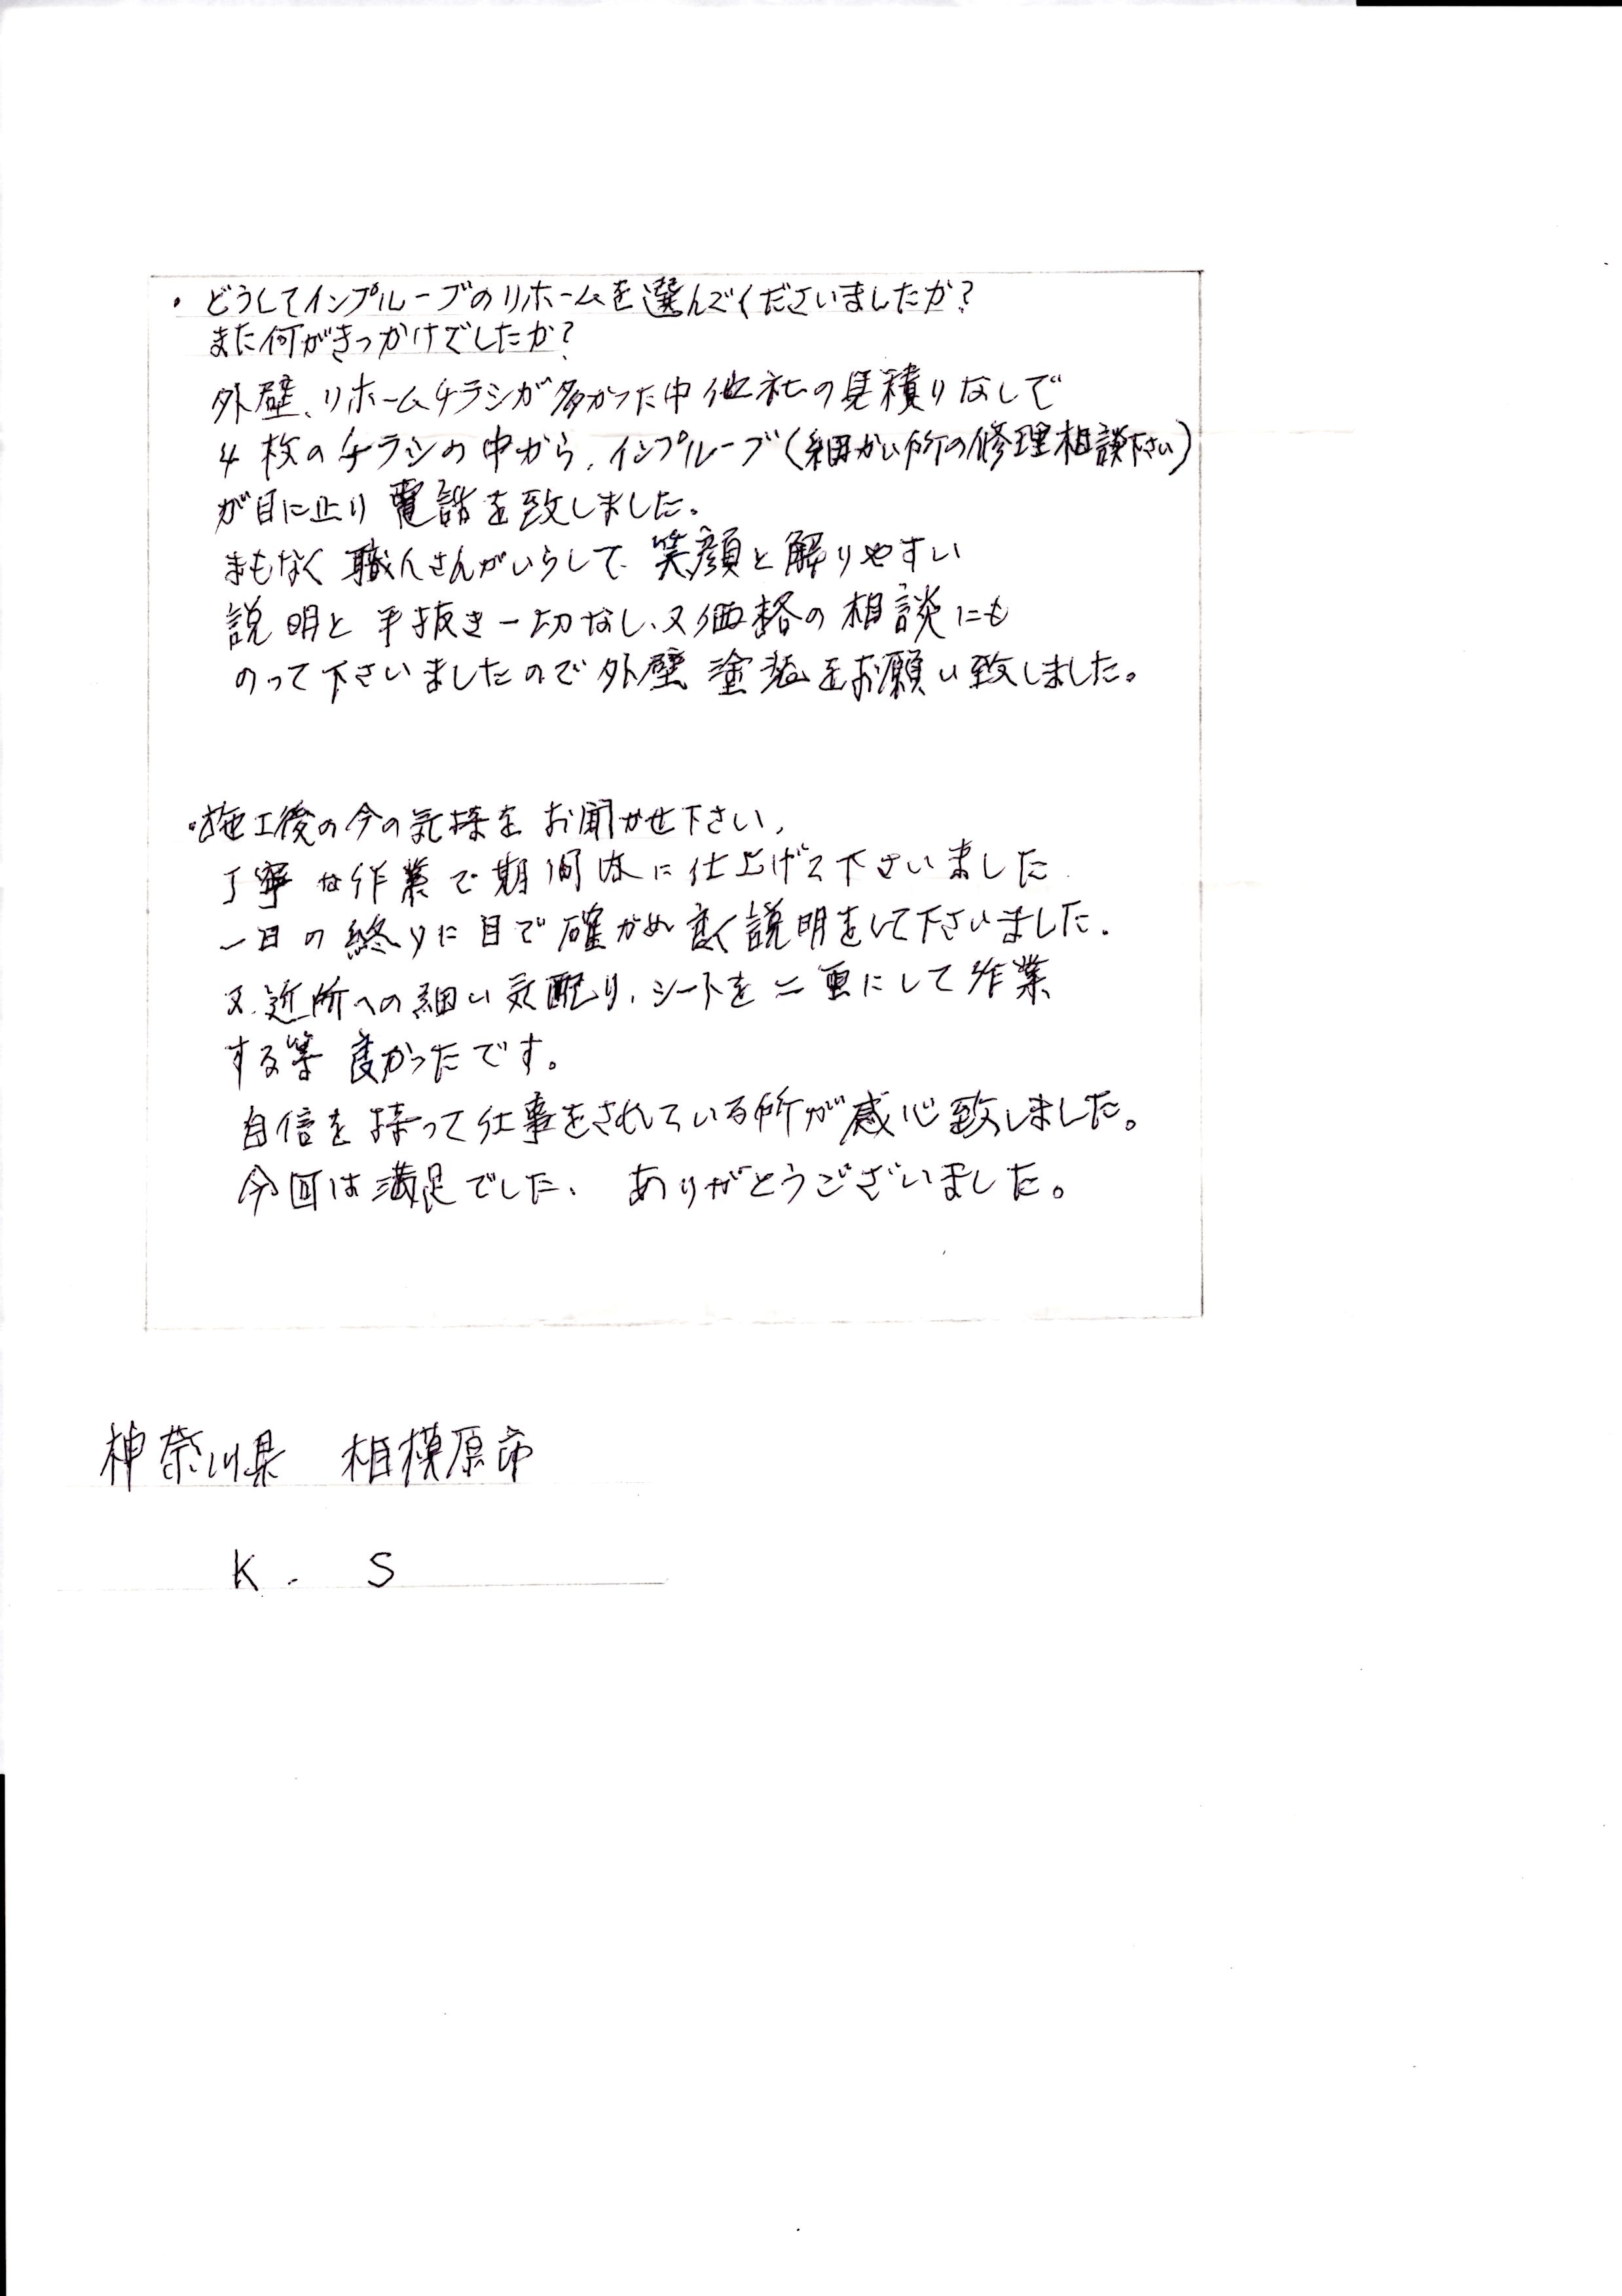 ・どうしてインプルーブのリホームを選んでくださいましたか?
また何がきっかけでしたか?
外壁、リホームチラシが多かった中他社の見積りなしで
4枚のチラシの中から、インプルーブ(細かい所の修理相談下さい)
が目に止り電話を致しました。
まもなく職人さんがいらして、笑顔と解りやすい
説明と手抜き一切なし、又価格の相談にも
のって下さいましたので外壁塗装をお願い致しました。
・施工後の今の気持をお聞かせ下さい、
丁寧な作業で期間内に仕上げて下さいました
一日の終りに目で確かめ良く説明をして下さいました。
又、近所への細い気配り、シートを二重にして作業
する等良かったです。
自信を持って仕事をされている所が感心致しました。
今回は満足でした、ありがとうございました。
神奈川県 相模原市
K. S